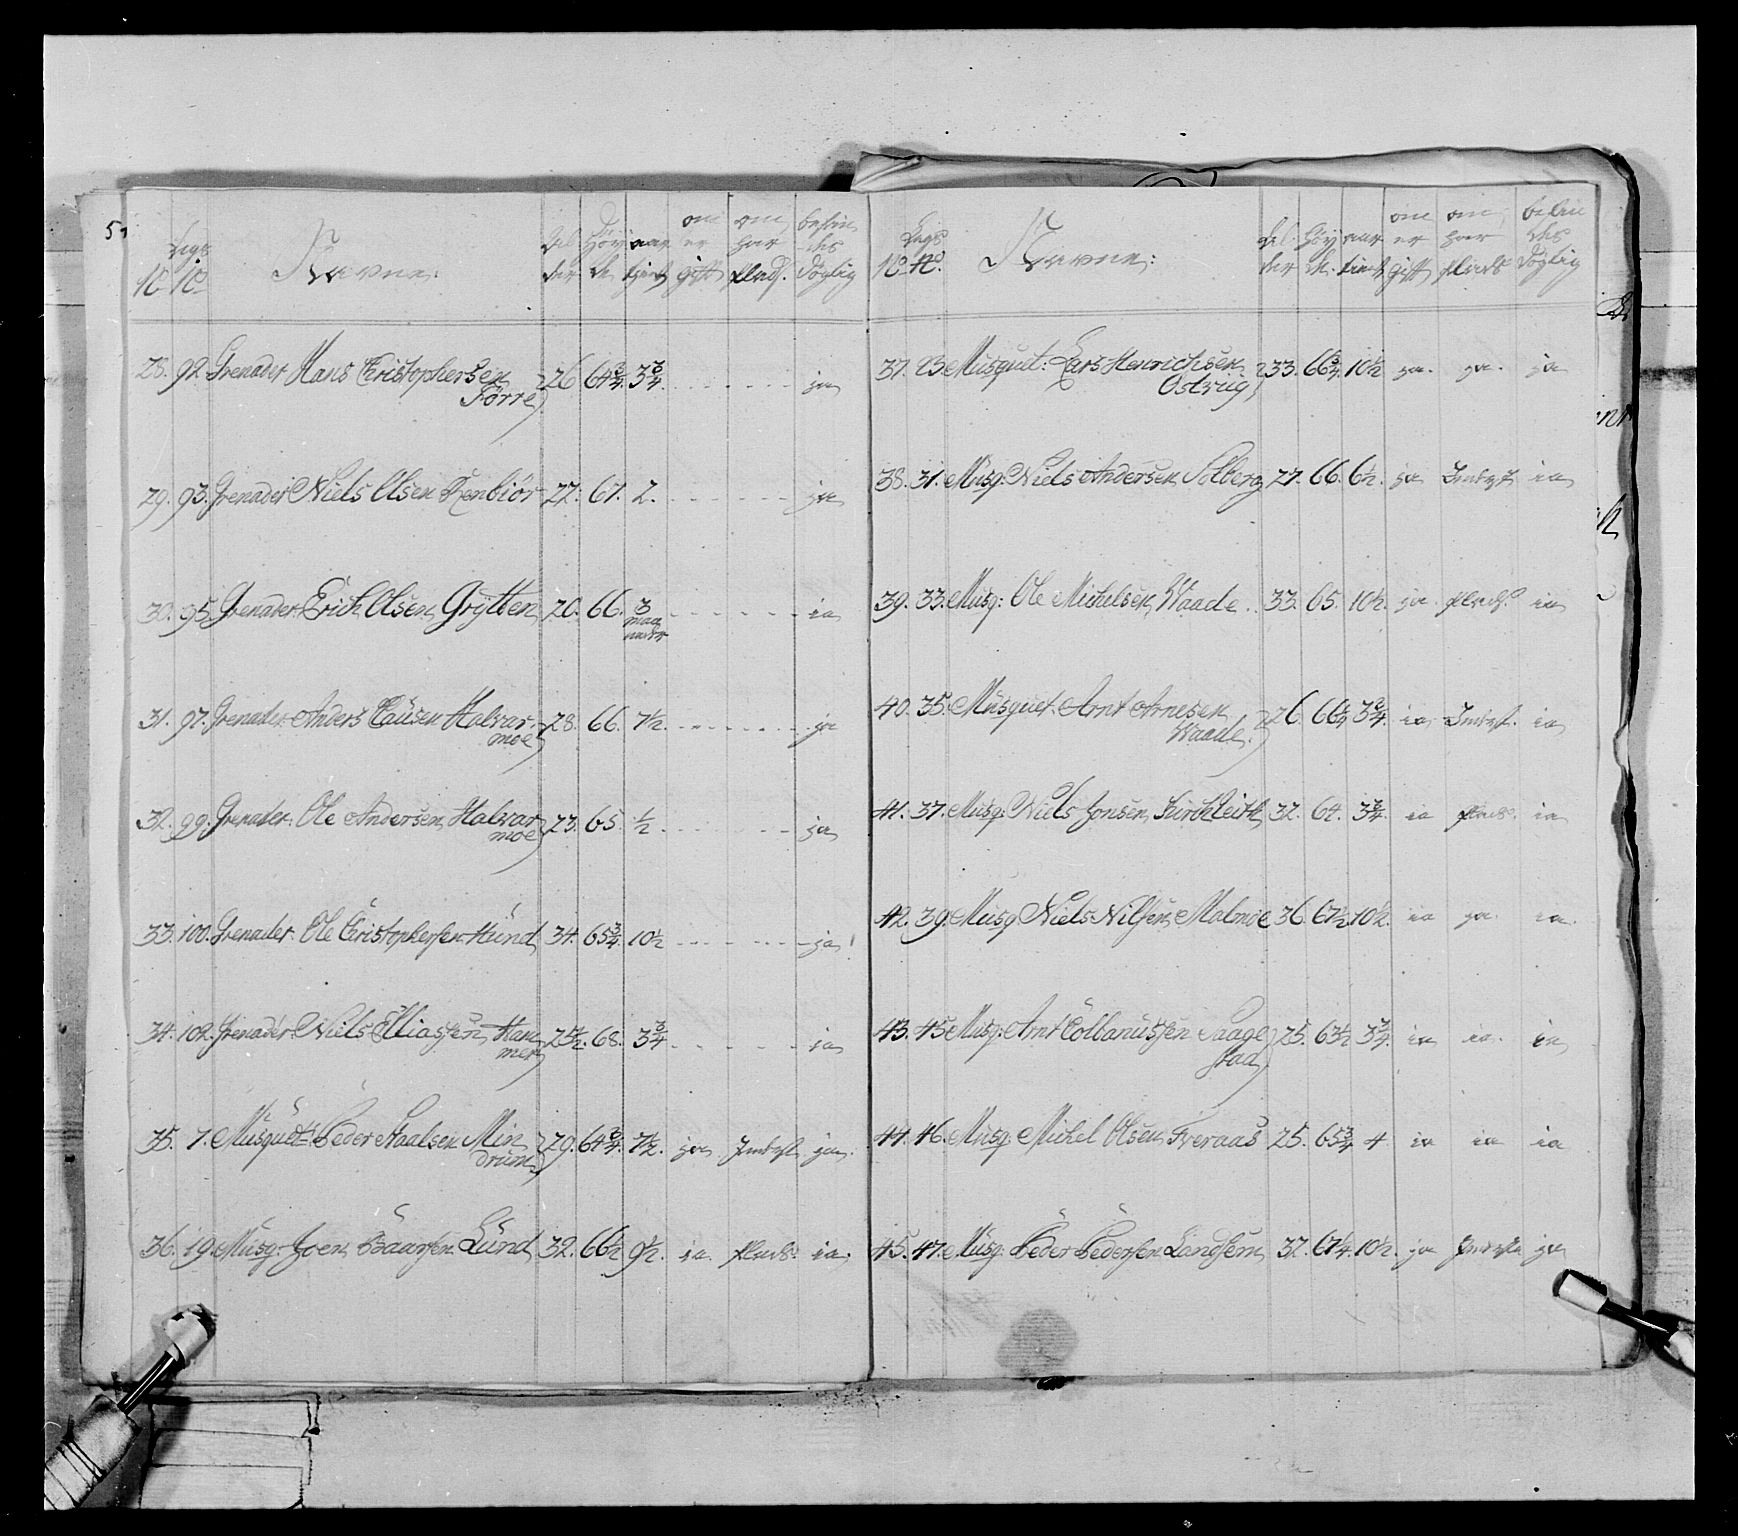 5.
Legs
No No Navne: Alder Høyde aar tient om er gift om har plads. befindes dygtig
28. 92. Grenader Hans Christophersen Forre 26 64 3/4. 3 3/4. ja
29. 93. Grenader Niels Olsen Renbiör 27. 67. 2. ja
30. 95. Grenader Erich Olsen Grÿtten 20. 66. 3 maaneder ia
31. 97. Grenader Anders Clausen Halvarmoe 28. 66. 7 1/2. ja
32. 99. Grenader: Ole Andersen Halvarmoe 23. 65. 1/2 ja
33. 100. Grenader. Ole Christophersen Hünd 34. 65 3/4. 10 1/2 ja
34. 102. Grenader Niels Elliassen Hammer 25 1/2. 68. 3 3/4 ja
35. 7. Musquet: Peder Haalsen Mindrum 29. 64 3/4. 7 1/2. ja Inderst ja.
36. 19. Musq: Joen Baarsen Lünd 32. 66 1/2 9 1/2. ia. plads: ia.
Legs
No No. Navne: Alder Høyde aar tient om er gift om har plads befindes dygtig
37. 23 Musquet: Lars Henrichsen Ostvüg 33. 66 3/4. 10 1/2 ja. ja. ja
38. 31. Musq: Niels Andersen Solberg 27. 66. 6 1/2. ja Inderst ia
39. 33. Musq: Ole Michelsen Waade. 33. 65. 10 1/2. ja plads. ia
40. 35. Musquet. Arnt Arnesen Waade. 26. 3 3/4 ia Inderst. ia
41. 37. Musq: Niels Jonsen Kirchleith 32. 64. 3 3/4. ia plads. ia
42. 39. Musq Niels Nilsen Malmoe 36. 67 1/2. 10 1/2. ia ja ia.
43. 45 Musq: Arnt Colbanussen Saagestad 25. 63 1/2 3 3/4. ia ia. ia
44. 46. Musq: Michel Olsen Tveraas 25. 65 3/4 4 ia ia ia
45. 47. Musq: Peder Pedersen Landsem 32. 67 1/4. 10 1/2. ja Inderste ja